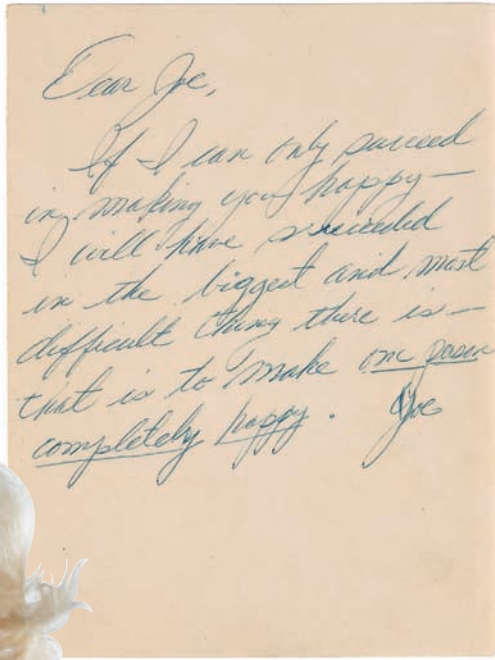 Dear Joe,
If I can only succeed
in making you happy—
I will have succeeded
in the biggest and most
difficult thing there is—
that is to make one person
completely happy. Joe